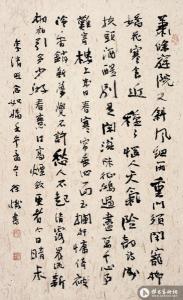 萧条庭院又斜风细雨重门须闭宠柳
娇花寒食近种种恼人天气险韵诗成
扶头酒醒别是闲滋味征鸿过尽万千心事
难寄楼上几日春寒帘垂四面玉阑干慵倚
被冷香消新梦觉不许愁人不起清露晨流新
桐初引多少游春意日高烟敛更看今日晴未
李清照念奴娇